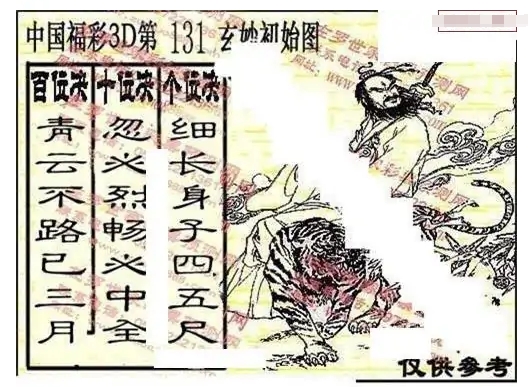 中国福彩3D第 131 玄妙初始图
百位决 十位决 个位决
青云不路已三月
忽火烈畅火中全
细长身子四五尺
仅供参考